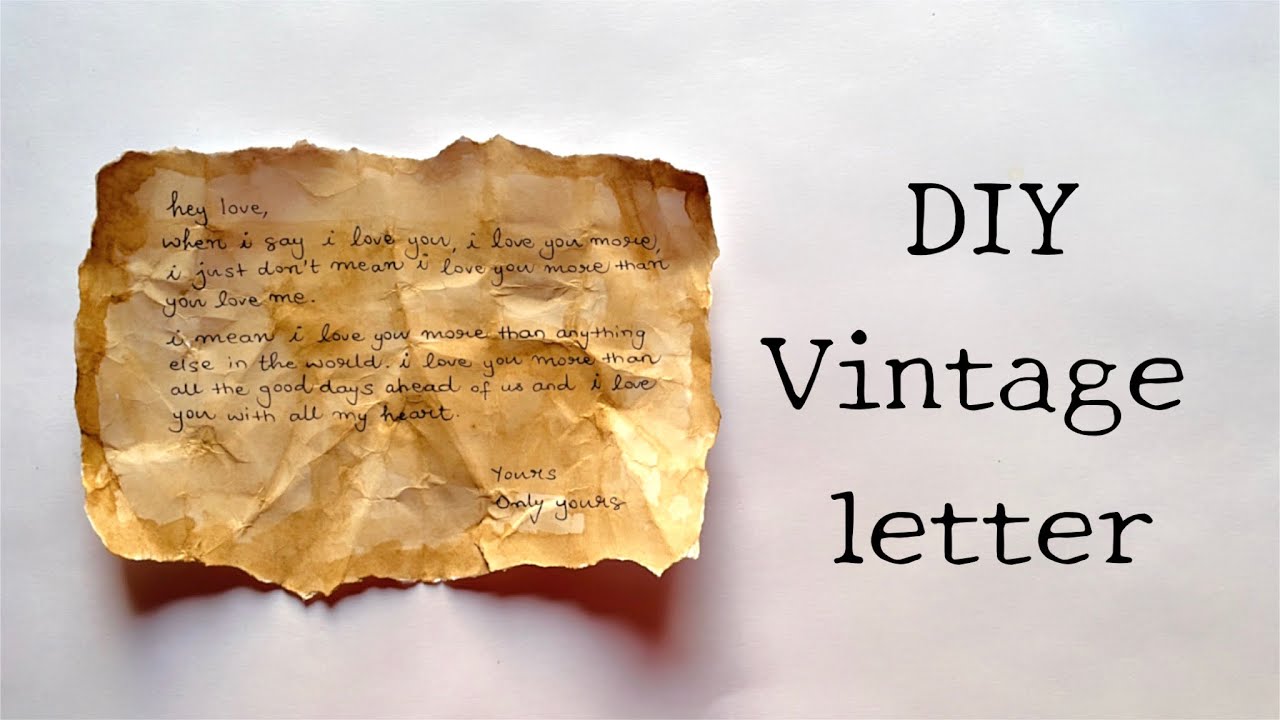 hey love,
when i say i love you, i love you more,
i just don't mean i love you more than
you love me.
i mean i love you more than anything
else in the world. i love you more than
all the good days ahead of us and i love
you with all my heart.
Yours
Only yours
DIY
Vintage
letter